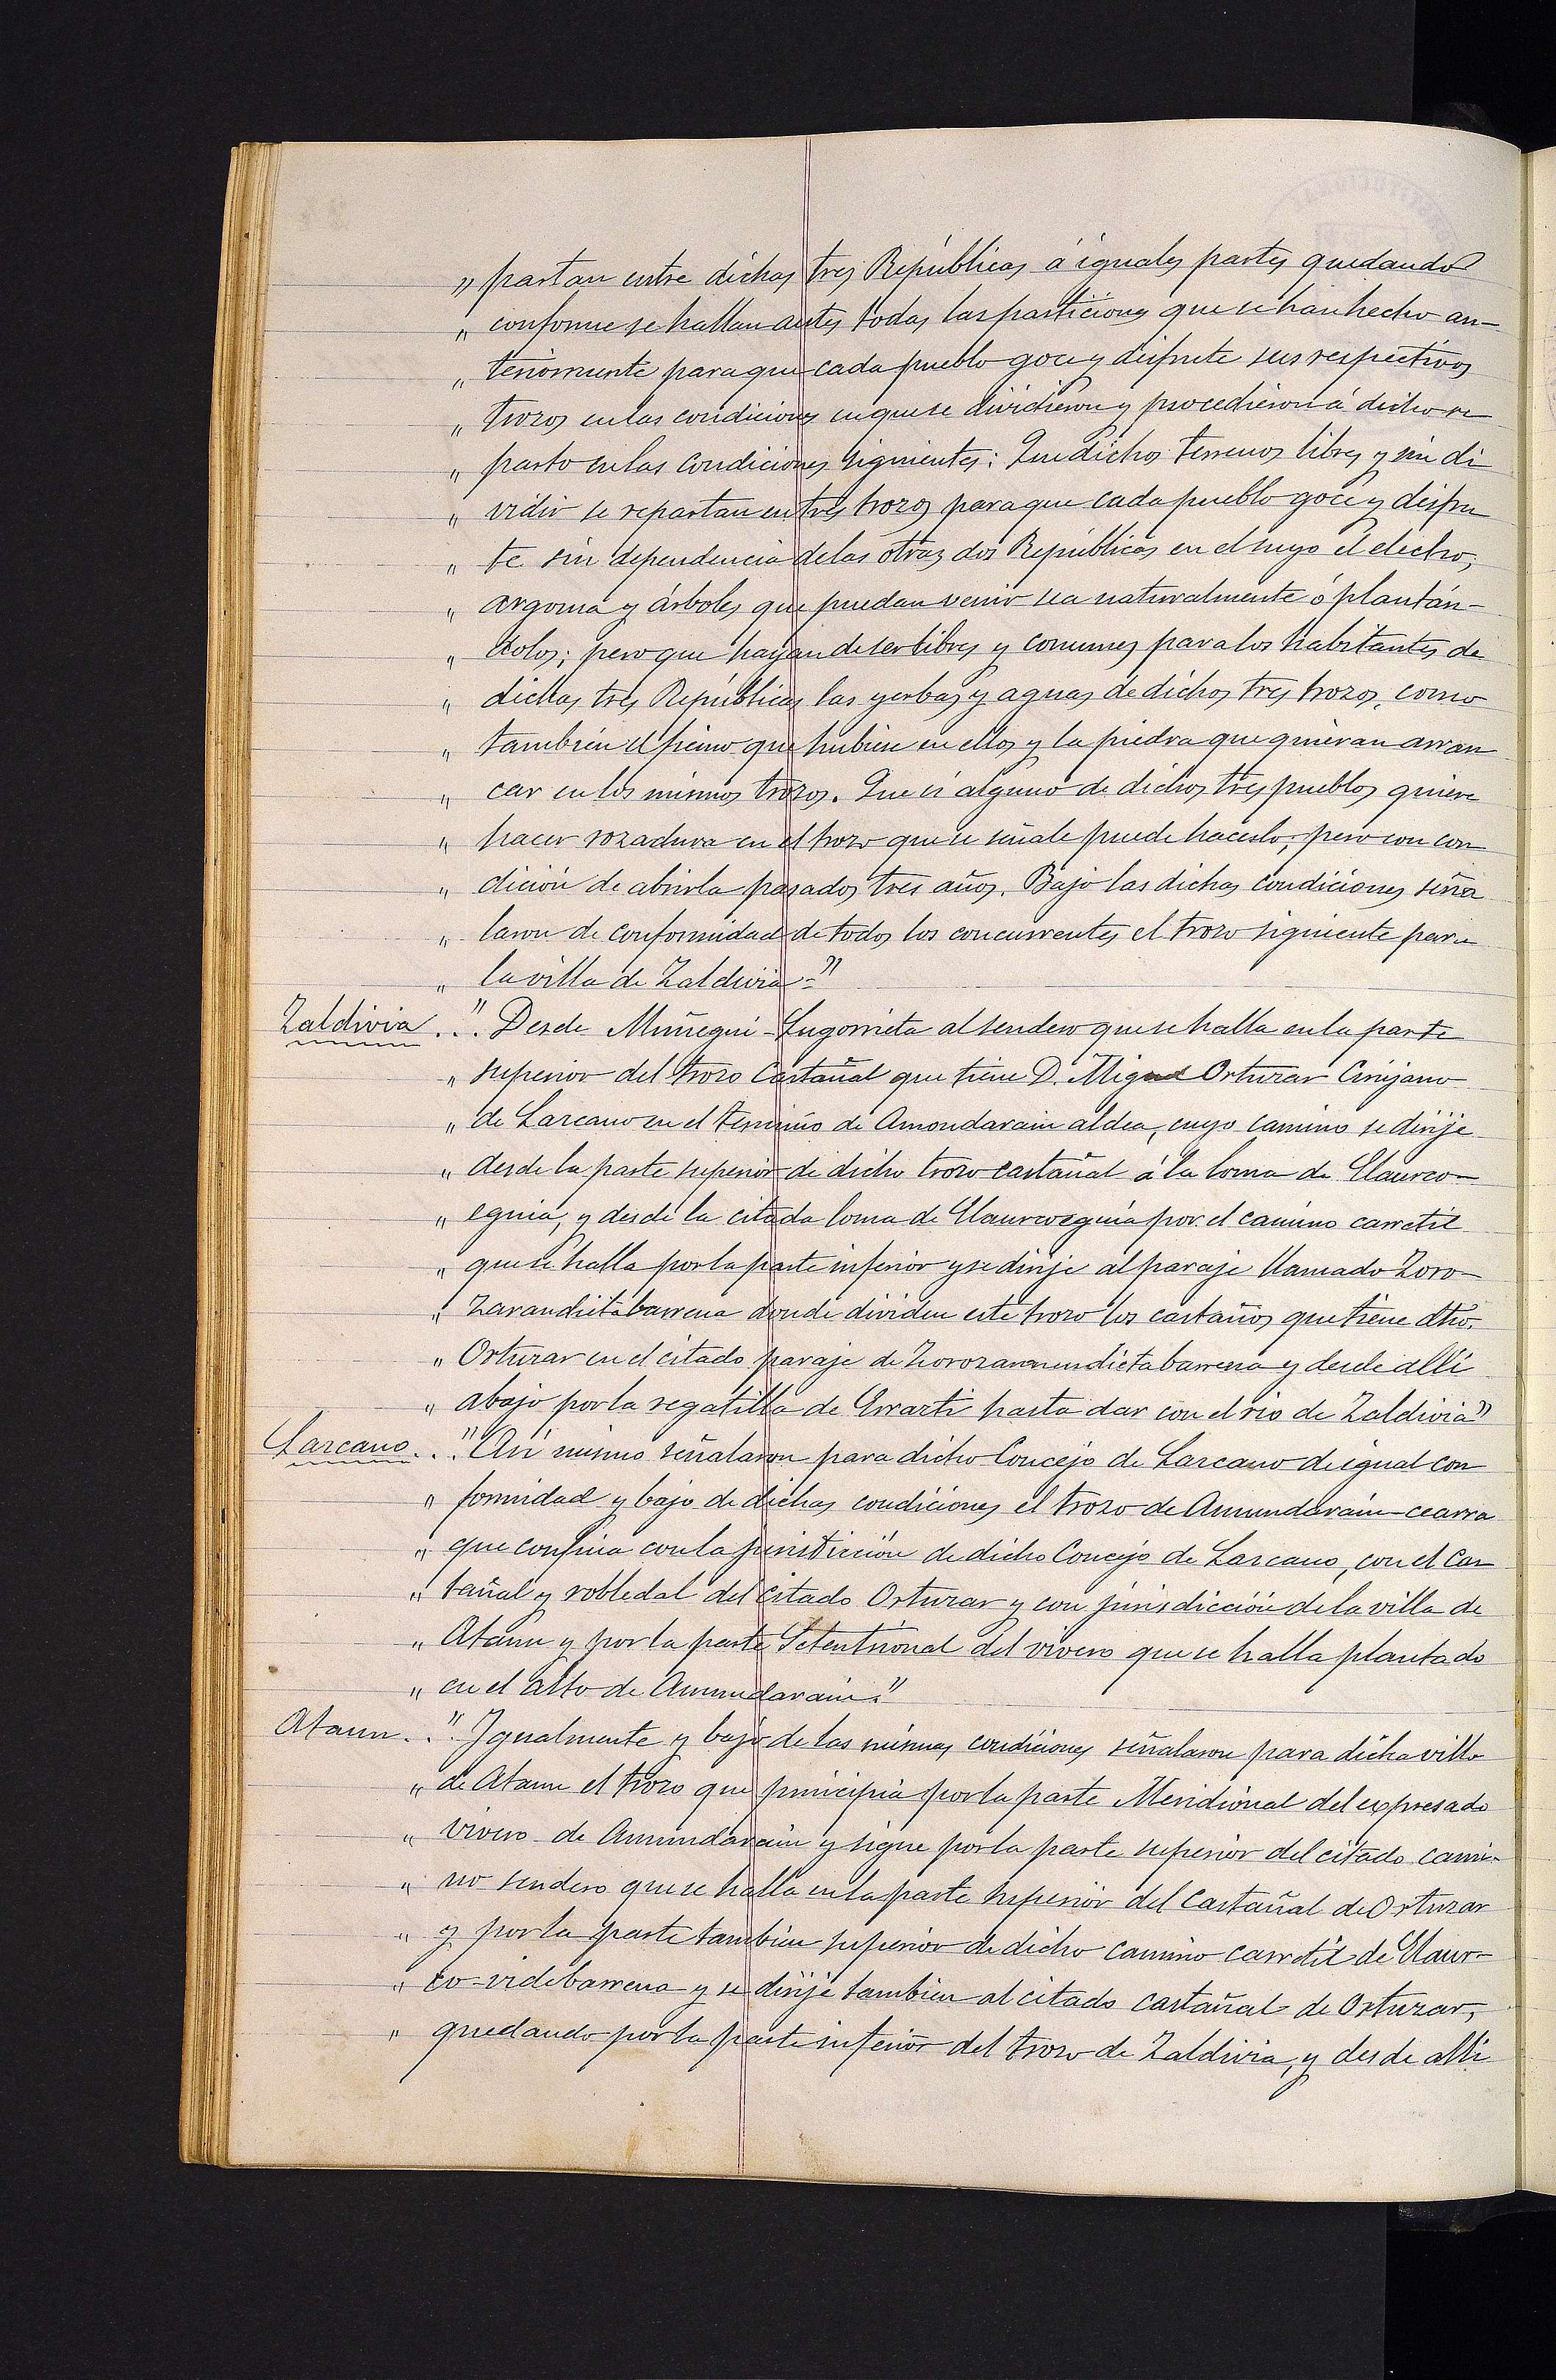 „ partan entre dichas tres Repúblicas á iguales partes quedando
„ conforme se hallan antes todas las particiones que se han hecho an-
„ teriormente para que cada pueblo goce y disfrute sus respectivos
„ trozos en las condiciones en que se dividieron y procedieron á dicho re
„ parto en las condiciones siguientes: Que dichos terrenos libres y sin di
„ vidir se repartan en tres trozos para que cada pueblo goce y disfru
„ te sin dependencia de las otras dos Repúblicas en el suyo el elecho,
„ argoma y árboles que puedan venir sea naturalmente ó plantán-
„ dolos; pero que hayan de ser libres y comunes para los habitantes de
„ dichas tres Repúblicas las yerbas y aguas de dichos tres trozos, como
„ también el fiemo que hubiere en ellos y la piedra que quieran arran
„ car en los mismos trozos. Que si alguno de dichos tres pueblos quiere
„ hacer rozadura en el trozo que se señale puede hacerlo, pero con con
„ dición de abrirla pasados tres años. Bajo las dichas condiciones seña
„ laron de conformidad de todos los concurrentes el trozo siguiente para
„ la villa de Zaldivia="
Zaldivia .." Desde Muñegui-Lugorrieta al sendero que se halla en la parte
„ superior del trozo Castañal que tiene D. Miguel Orturar Cirijano
„ de Lazcano en el término de Amondarain aldea, cuyo camino se dirije
„ desde la parte superior de dicho trozo castañal á la loma de Elaurco-
„ eguia, y desde la citada loma de Elaurcoeguia por el camino carretil
„ que se halla por la parte inferior y se dirije al paraje llamado Zoro-
„ zarandieta barrena donde dividen este trozo los castaños que tiene dho.
„ Orturar en el citado paraje de barrena y desde allí
„ abajo por la regatilla de Errarti hasta dar con el rio de Zaldivia"
Lazcano .." Asi mismo señalaron para dicho Concejo de Lazcano de igual con
„ formidad y bajo de dichas condiciones el trozo de Amundarain-cearra
„ que confina con la jurisdicción de dicho Concejo de Lazcano, con el Cas
„ tañal y robledal del citado Orturar y con jurisdicción de la villa de
„ Ataun y por la parte Setentrional del vivero que se halla plantado
„ en el alto de Amundarain."
Ataun .." Igualmente y bajo de las mismas condiciones señalaron para dicha villa
„ de Ataun el trozo que principia por la parte Meridional del expresado
„ vivero de Amundarain y sigue por la parte superior del citado cami-
„ no sendero que se halla en la parte superior del Castañal de Orturar
„ y por la parte tambien superior de dicho camino carretil de Elaur-
„ co-videbarrena y se dirije tambien al citado castañal de Orturar,
„ quedando por la parte inferior del trozo de Zaldivia, y desde alli